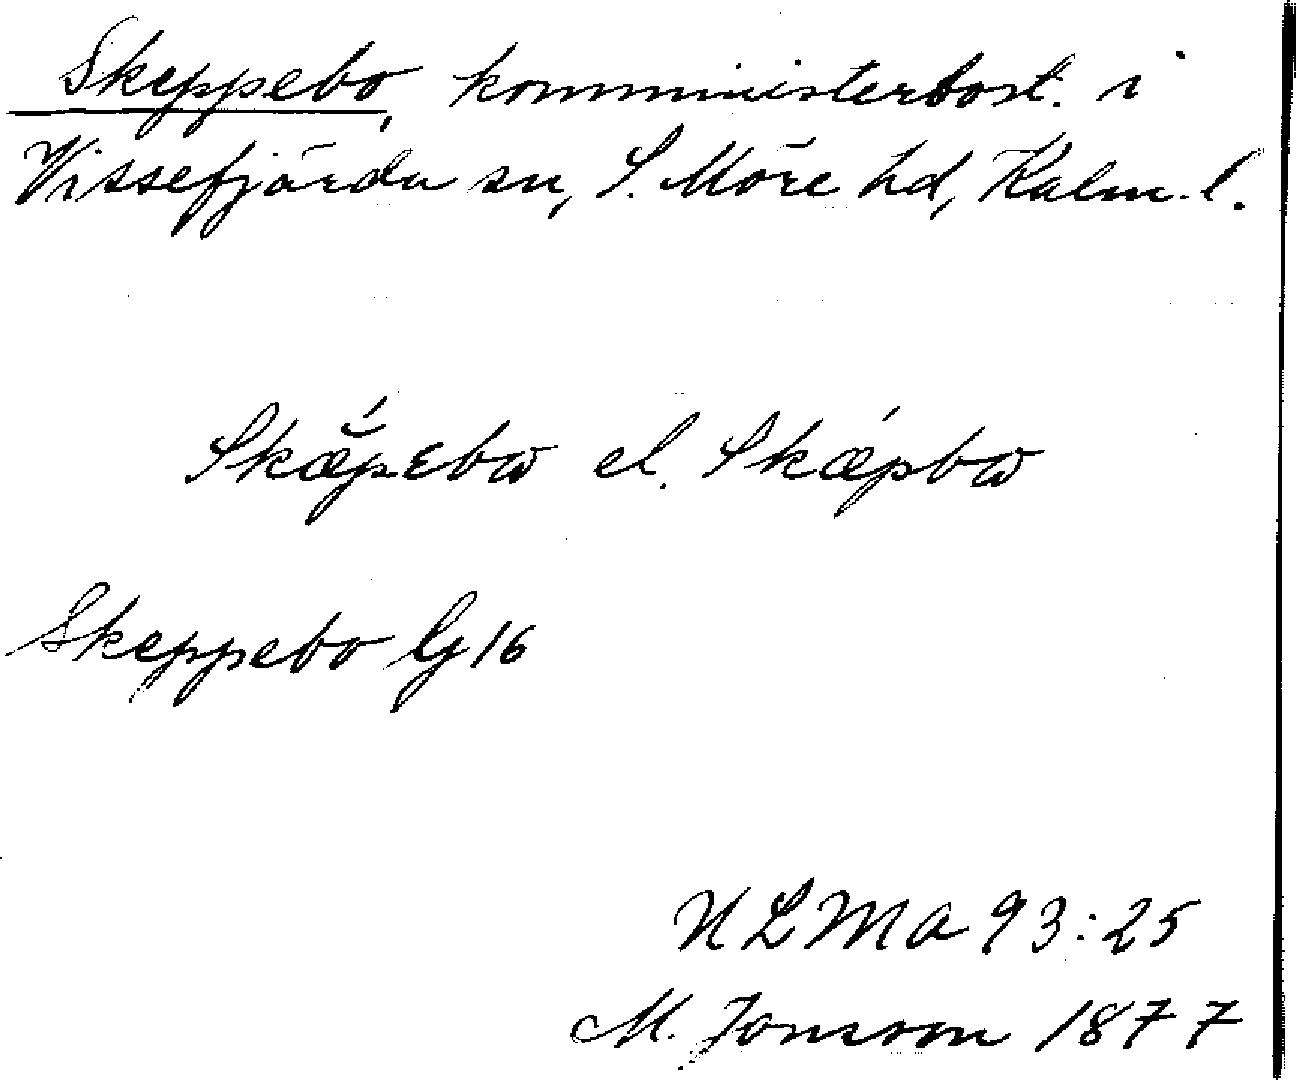 Skeppebo, komministerbost. i
Vissefjärda sn, S. Möre hd, Kalm. l.
Skæ̆́pεbω el. Skǽpbω
Skeppebo G 16
NLMa 93:25
M. Jonsson 1877